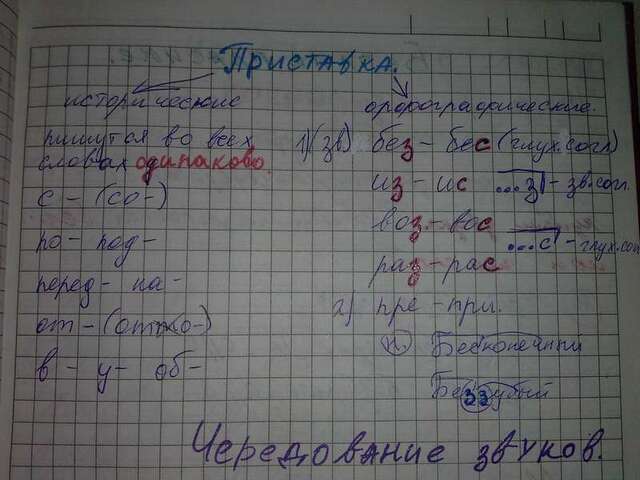 Приставка.
исторические
орфографические.
пишутся во всех
словах одинаково.
с - (со-)
по- под-
перед- на-
от - (ото-)
в - у- об-
1) (зв) без - бес (глух.согл)
из - ис ...з - зв.согл.
воз - вос ...с - глух.сог
раз - рас
2) пре - при.
Н. Бесконечный
Беззубый
Чередование звуков.